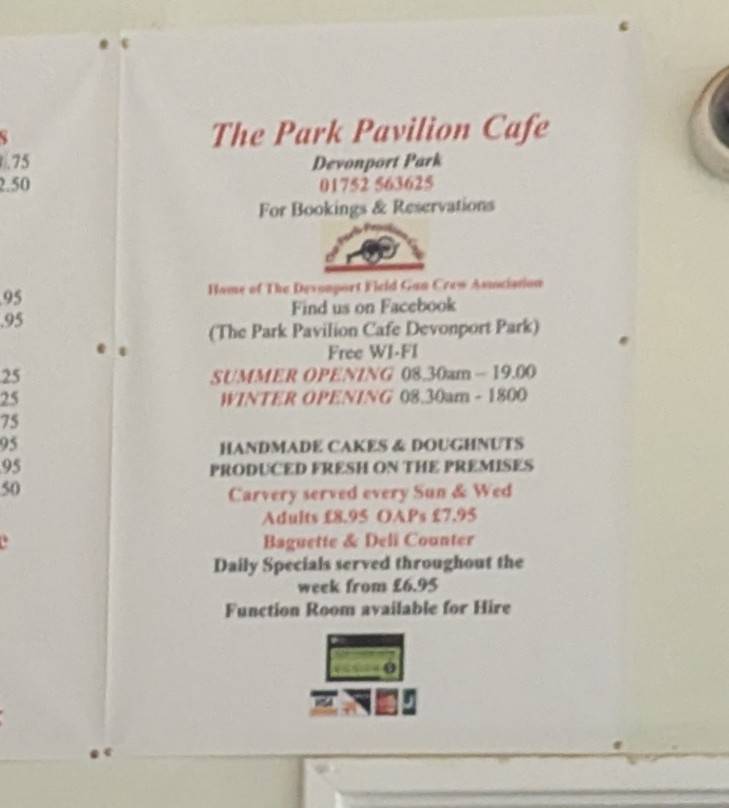 s
.75
2.50
.95
.95
25
25
75
95
.95
50
e
The Park Pavilion Cafe
Devonport Park
01752 563625
For Bookings & Reservations
The Park Pavilion Cafe
Home of The Devonport Field Gun Crew Association
Find us on Facebook
(The Park Pavilion Cafe Devonport Park)
Free WI-FI
SUMMER OPENING 08.30am – 19.00
WINTER OPENING 08.30am - 1800
HANDMADE CAKES & DOUGHNUTS
PRODUCED FRESH ON THE PREMISES
Carvery served every Sun & Wed
Adults £8.95 OAPs £7.95
Baguette & Deli Counter
Daily Specials served throughout the
week from £6.95
Function Room available for Hire
VISA